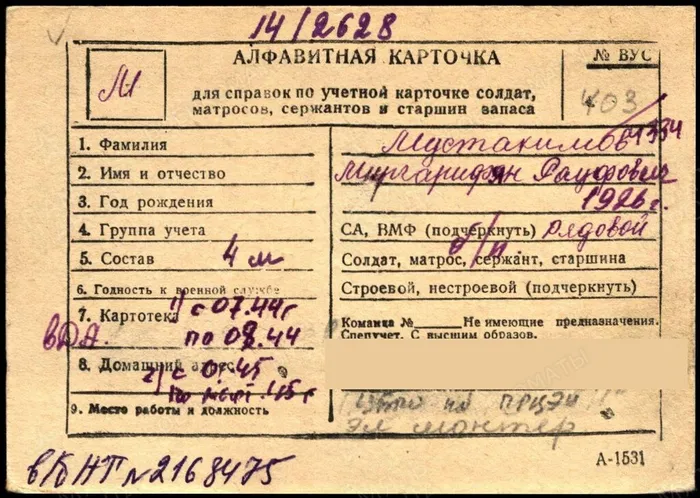 14/2628
АЛФАВИТНАЯ КАРТОЧКА
№ ВУС
М
для справок по учетной карточке солдат,
матросов, сержантов и старшин запаса
403
1. Фамилия Мустакимов 1334
2. Имя и отчество Миргарифян Рауфович
3. Год рождения 1926 г.
4. Группа учета СА, ВМФ (подчеркнуть) рядовой
5. Состав 4 м б/п Солдат, матрос, сержант, старшина
6. Годность к военной службе Строевой, нестроевой (подчеркнуть)
7. Картотека 1) с 07.44г
ВДА. по 08.44
Команда № Не имеющие предназначения.
Спецучет. С высшим образов.
8. Домашний адрес
2) с 01.45
по 45 г
9. Место работы и должность
эл монтер
в/б НТ №2168475
А-1531